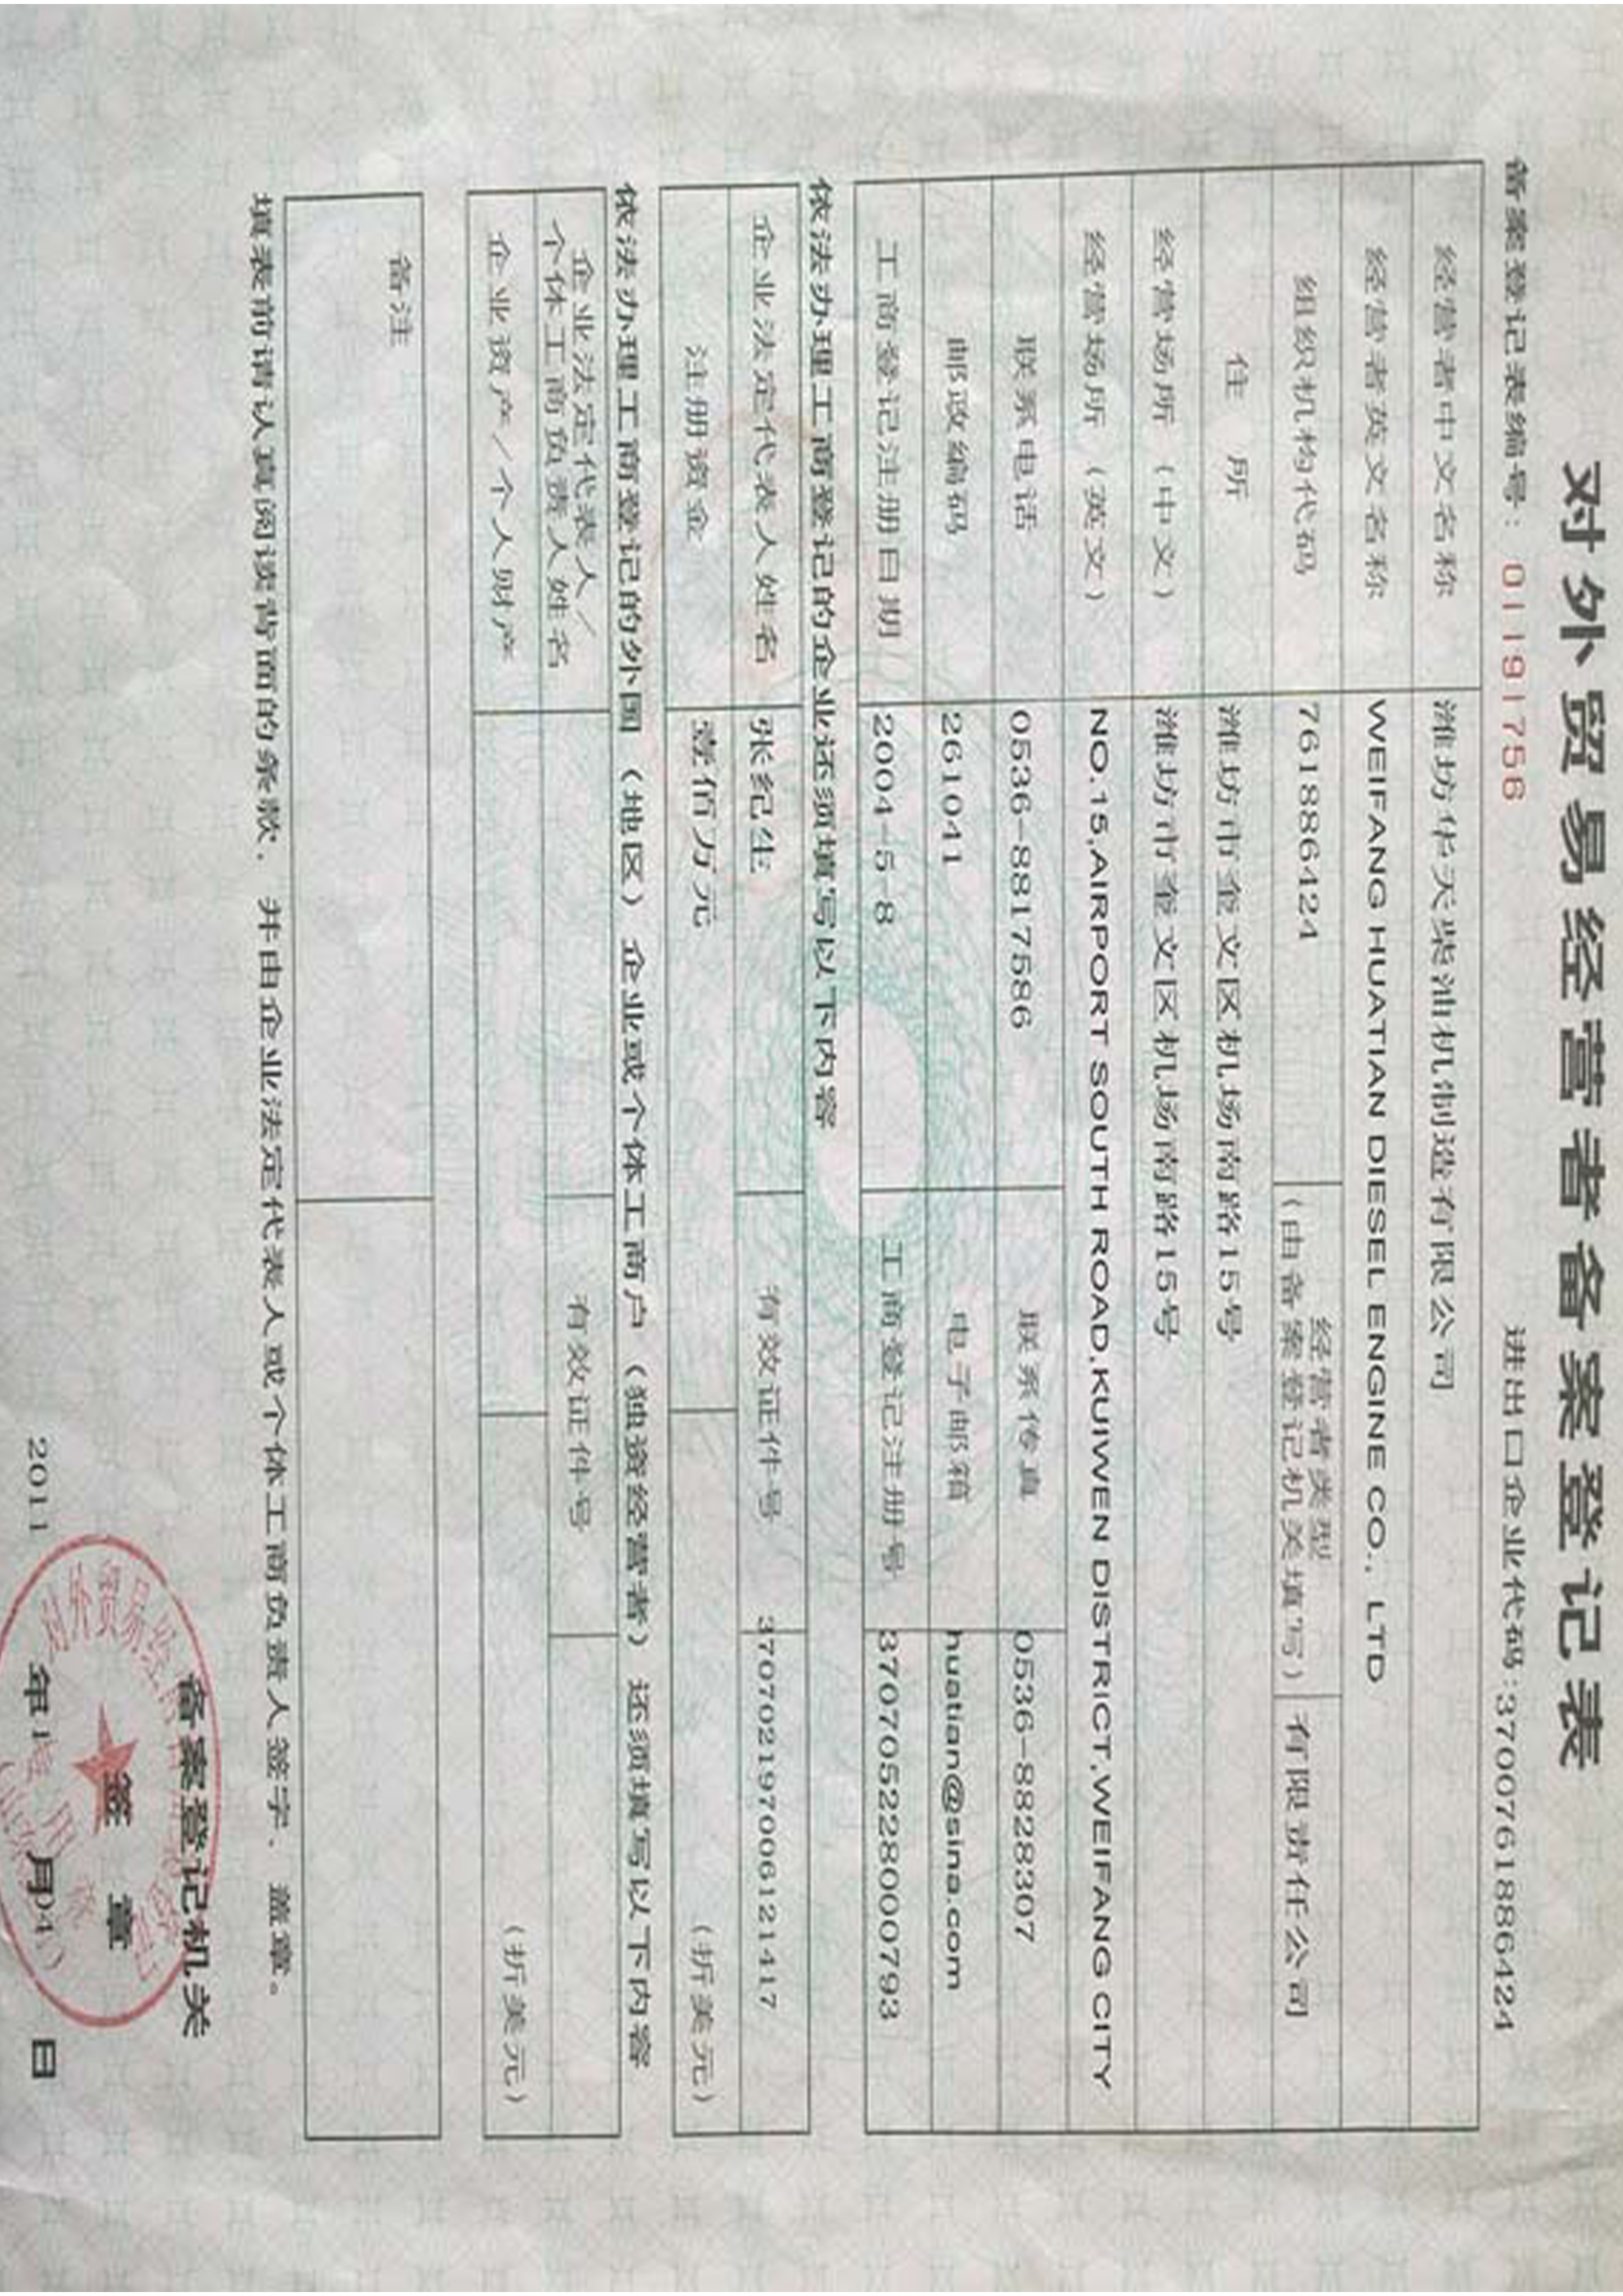 对外贸易经营者备案登记表
备案登记表编号：01191756 进出口企业代码:3700761886424
经营者中文名称 潍坊华天柴油机制造有限公司
经营者英文名称 WEIFANG HUATIAN DIESEL ENGINE CO., LTD
组织机构代码 761886424 经营者类型（由备案登记机关填写） 有限责任公司
住 所 潍坊市奎文区机场南路15号
经营场所（中文） 潍坊市奎文区机场南路15号
经营场所（英文） NO.15,AIRPORT SOUTH ROAD,KUIWEN DISTRICT,WEIFANG CITY
联系电话 0536-8817586 联系传真 0536-8828307
邮政编码 261041 电子邮箱 huatian@sina.com
工商登记注册日期 2004-5-8 工商登记注册号 370705228000793
依法办理工商登记的企业还须填写以下内容
企业法定代表人姓名 张纪生 有效证件号 370702197006121417
注册资金 壹佰万元 （折美元）
依法办理工商登记的外国（地区）企业或个体工商户（独资经营者）还须填写以下内容
企业法定代表人/
个体工商负责人姓名 有效证件号
企业资产/个人财产 （折美元）
备注
填表前请认真阅读背面的条款，并由企业法定代表人或个体工商负责人签字、盖章。
备案登记机关
签 章
2011 年 月 日